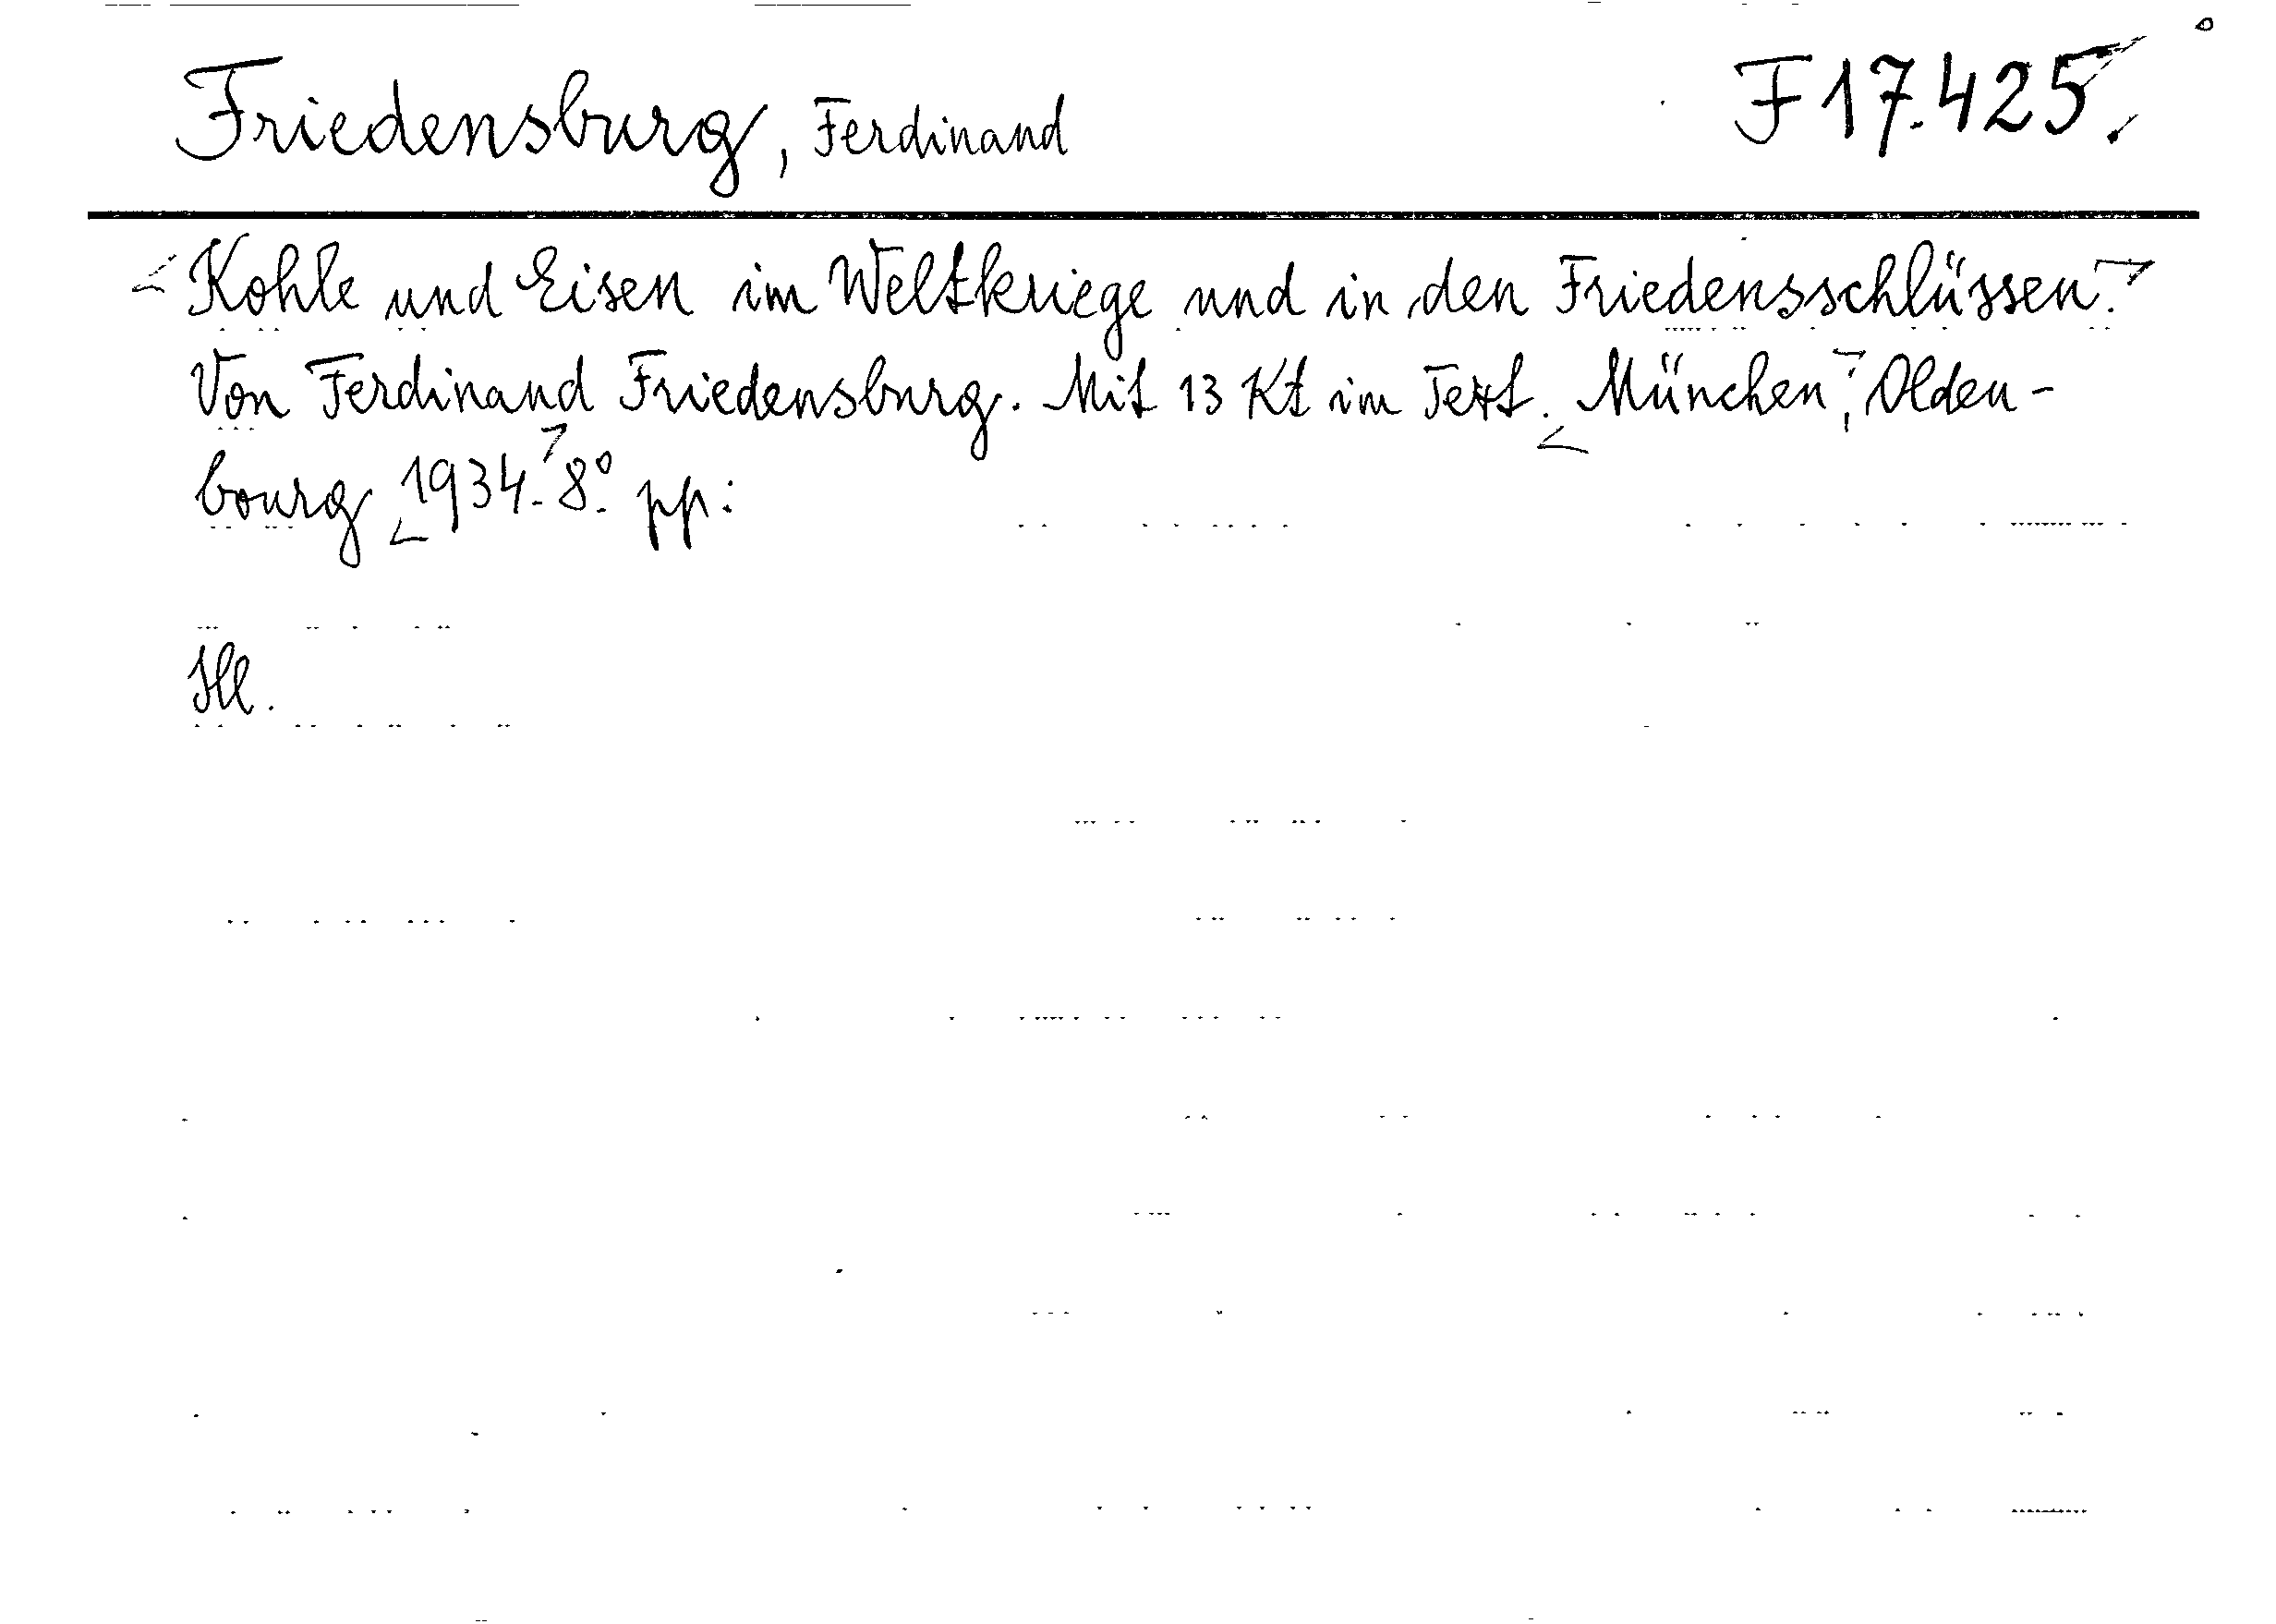 Friedensburg, Ferdinand F 17.425.
Kohle und Eisen im Weltkriege und in den Friedensschlüssen.
Von Ferdinand Friedensburg. Mit 13 Kt im Text. München, Olden-
bourg 1934. 8° pp:
Hl.